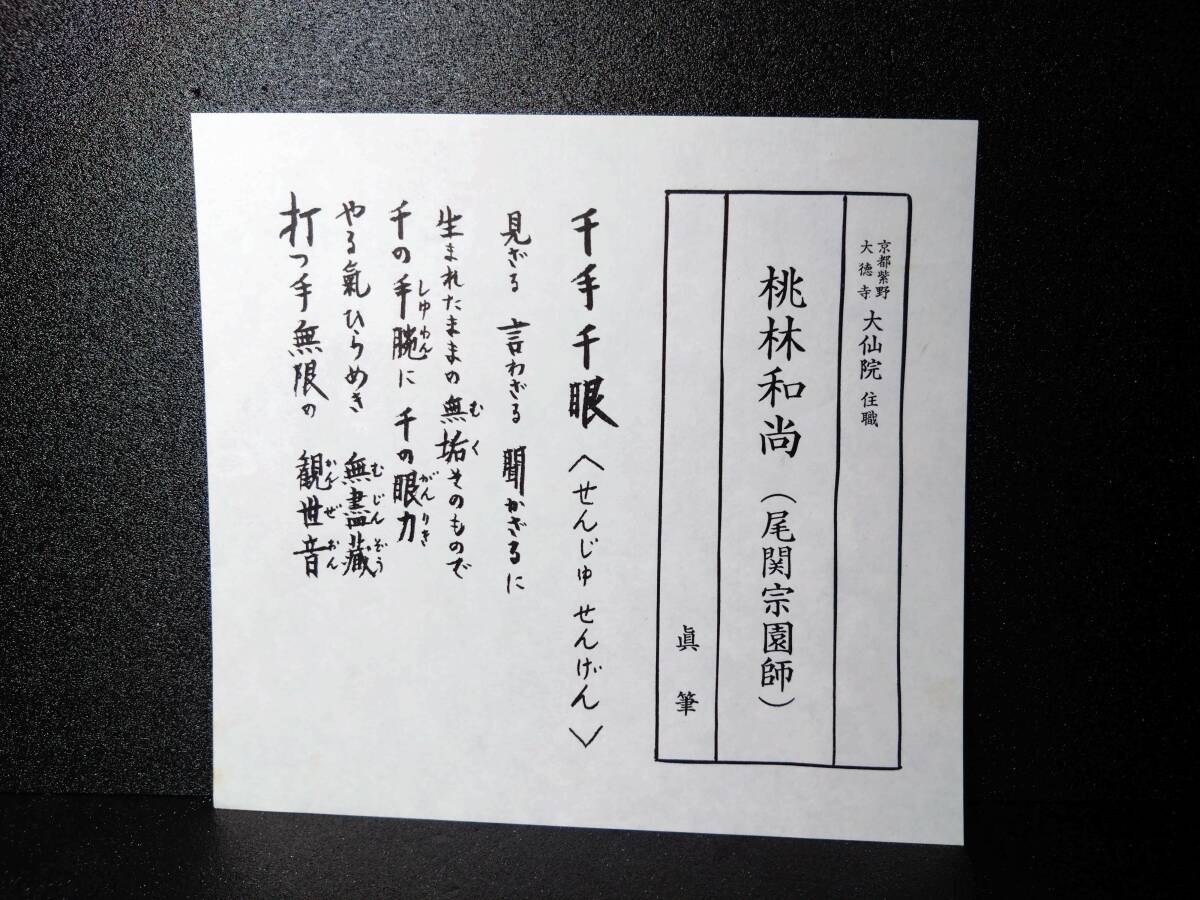 京都紫野
大徳寺
大仙院 住職
桃林和尚（尾関宗園師）
眞筆
千手千眼〈せんじゅ せんげん〉
見ざる 言わざる 聞かざるに
生まれたままの無垢そのもので
むく
千の手腕に 千の眼力
しゅわん がんりき
やる氣ひらめき 無盡藏
むじんぞう
打つ手無限の 観世音
かんぜおん